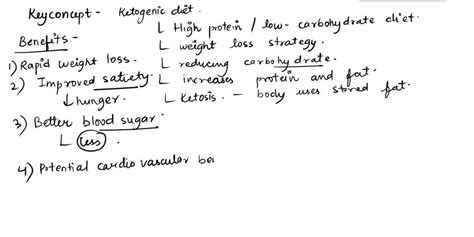 Keyconcept - Ketogenic diet.
Benefits -
L High protein / low-carbohydrate diet.
L weight loss strategy.
L reducing carbohydrate.
L increases protein and fat.
L Ketosis. - body uses stored fat.
1) Rapid weight loss.
2) Improved satiety.
↓ hunger.
3) Better blood sugar.
L less.
4) Potential cardio vascular be